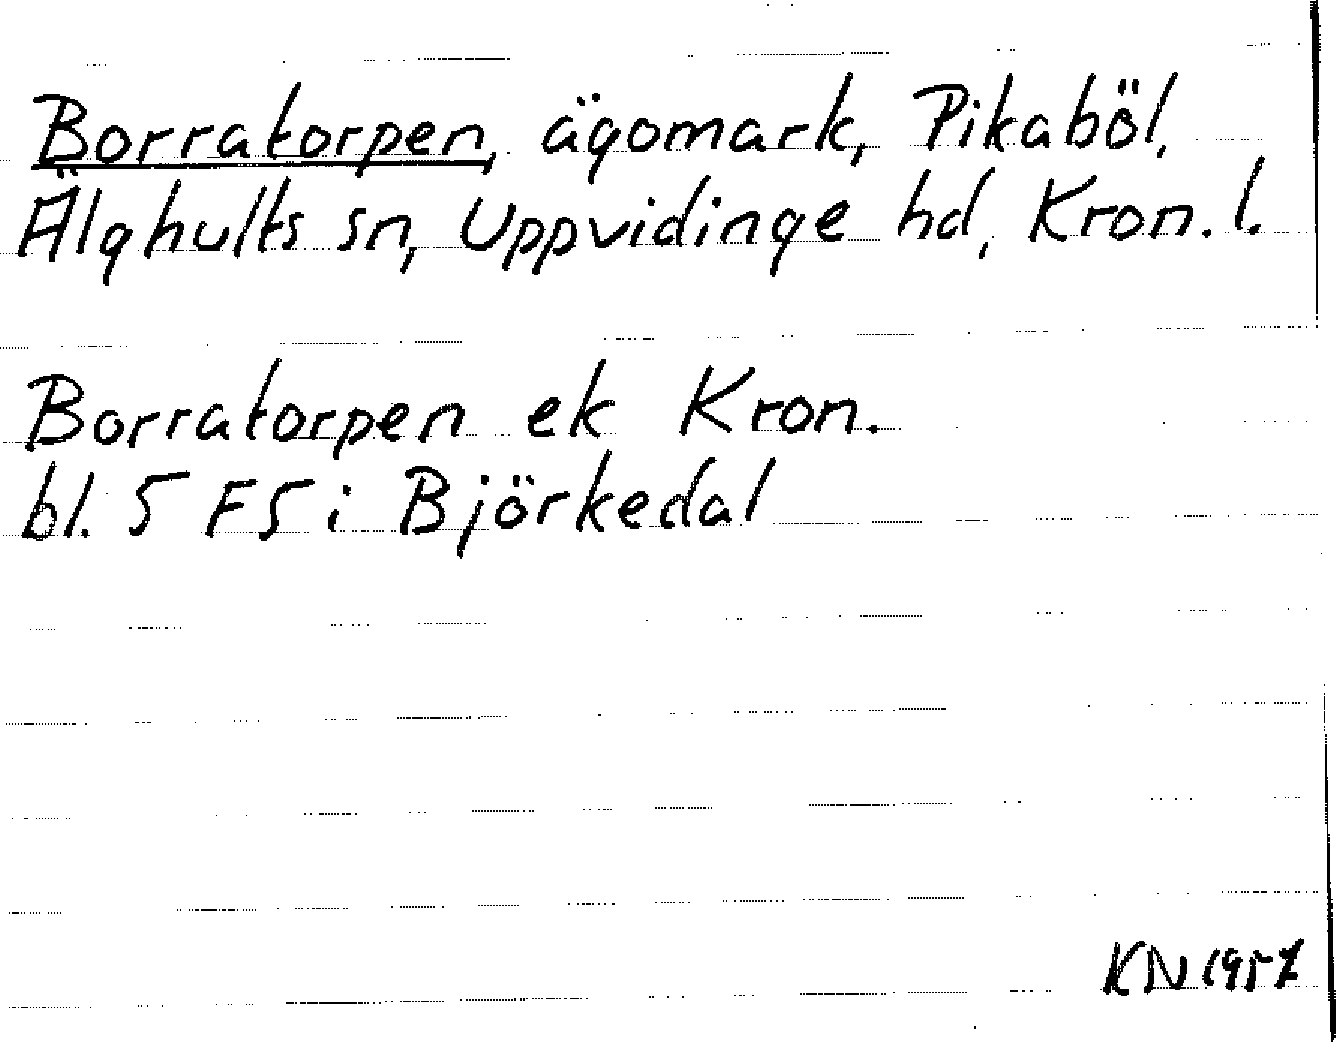 Borratorpen, ägomark, Pikaböl,
Älghults sn, Uppvidinge hd, Kron. l.
Borratorpen ek Kron.
bl. 5 F5 i Björkedal
KN 1957